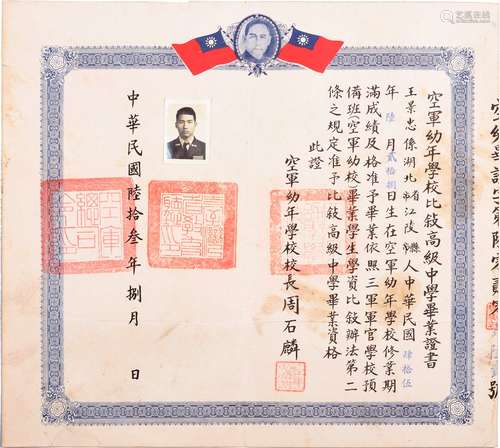 空軍幼年學校比敘高級中學畢業證書
王景忠係湖北省江陵縣人中華民國肆拾伍
年陸月貳拾捌日生在空軍幼年學校修業期
滿成績及格准予畢業依照三軍軍官學校預
備班(空軍幼校)畢業學生學資比敘辦法第二
條之規定准予比敘高級中學畢業資格
此證
空軍幼年學校校長周石麟
中華民國陸拾叁年捌月 日